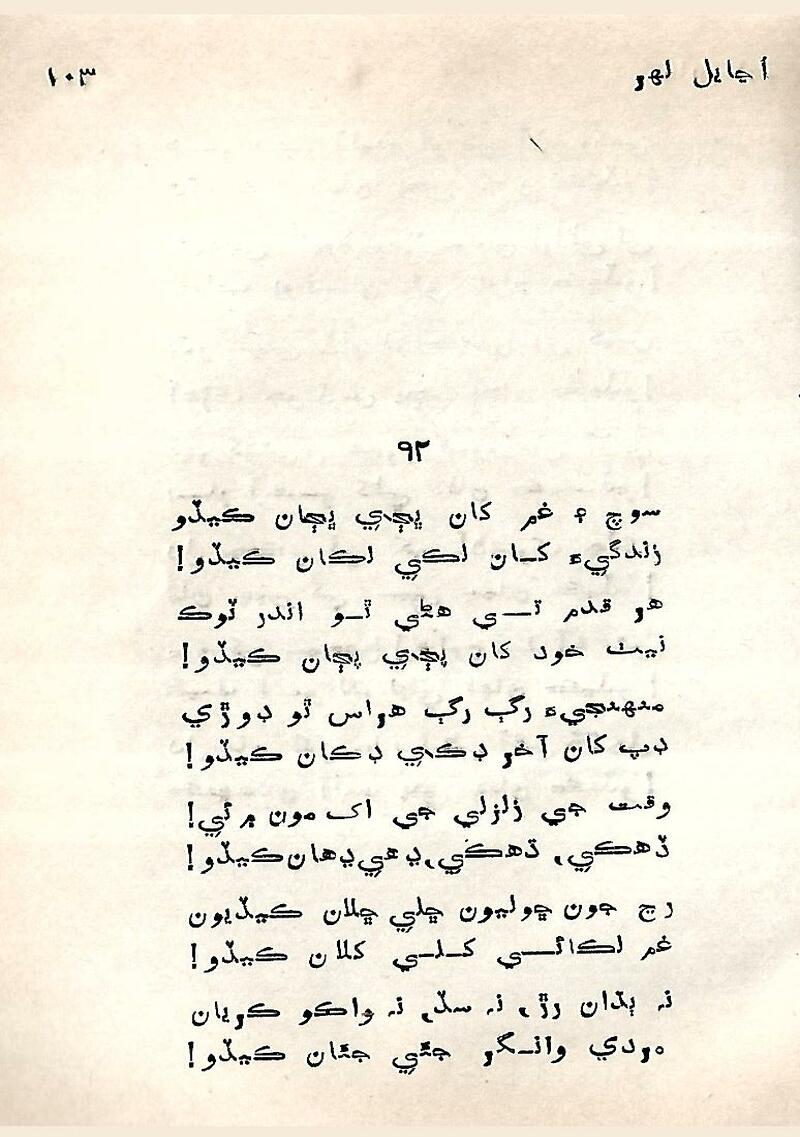 اڃايل لهر
١٠٣
٩٢
سوچ ۽ غم کان ڀڄي ڀڄان ڪيڏو
زندگيءَ کان لڪي لڪان ڪيڏو!
هر قدم تي هڻي ٿو اندر ٽوڪ
نيٺ خود کان ڀڄي ڀڄان ڪيڏو!
منهنجيءَ رڳ رڳ هراس ٿو ڊوڙي
ڊپ کان آخر ڊڪي ڊڪان ڪيڏو!
وقت جي زلزلي جي اک مون ۾ ئي!
ڏهڪي، ڏهڪي، ڊهي ڊهان ڪيڏو!
رڃ جون ڇوليون ڇلي ڇلان ڪيڏيون
غم لڪائي کلي کلان ڪيڏو!
نه ٻڌان رڙ، نه سڏ، نه واڪو ڪريان
مردي وانگر جٿي جٿان ڪيڏو!